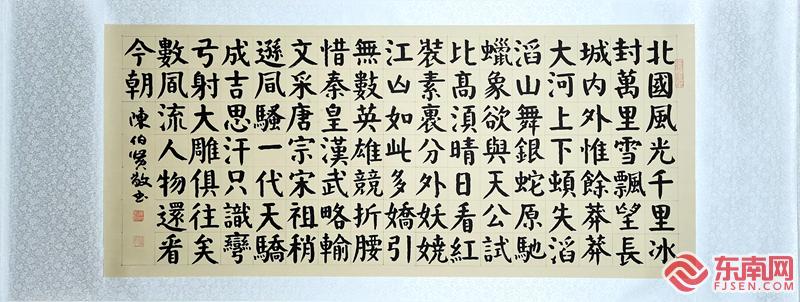 北國風光千里冰
封萬里雪飄望長
城内外惟餘莽莽
大河上下頓失滔
滔山舞銀蛇原馳
蠟象欲與天公試
比高須晴日看紅
裝素裹分外妖嬈
江山如此多嬌引
無數英雄競折腰
惜秦皇漢武略輸
文采唐宗宋祖稍
遜風騷一代天驕
成吉思汗只識彎
弓射大雕俱往矣
數風流人物還看
今朝
陳伯賢敬书
东南网
FJSEN.COM